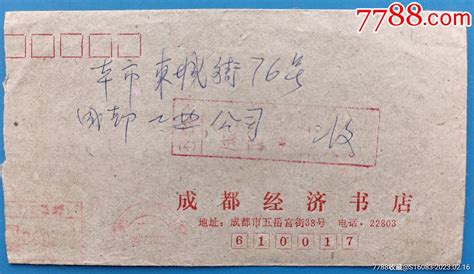 7788.com
本市東城街76号
成都工业公司 收
成都经济书店
地址：成都市五岳宫街38号 电话·22803
610017
7788收藏@S16083-2023.02.16